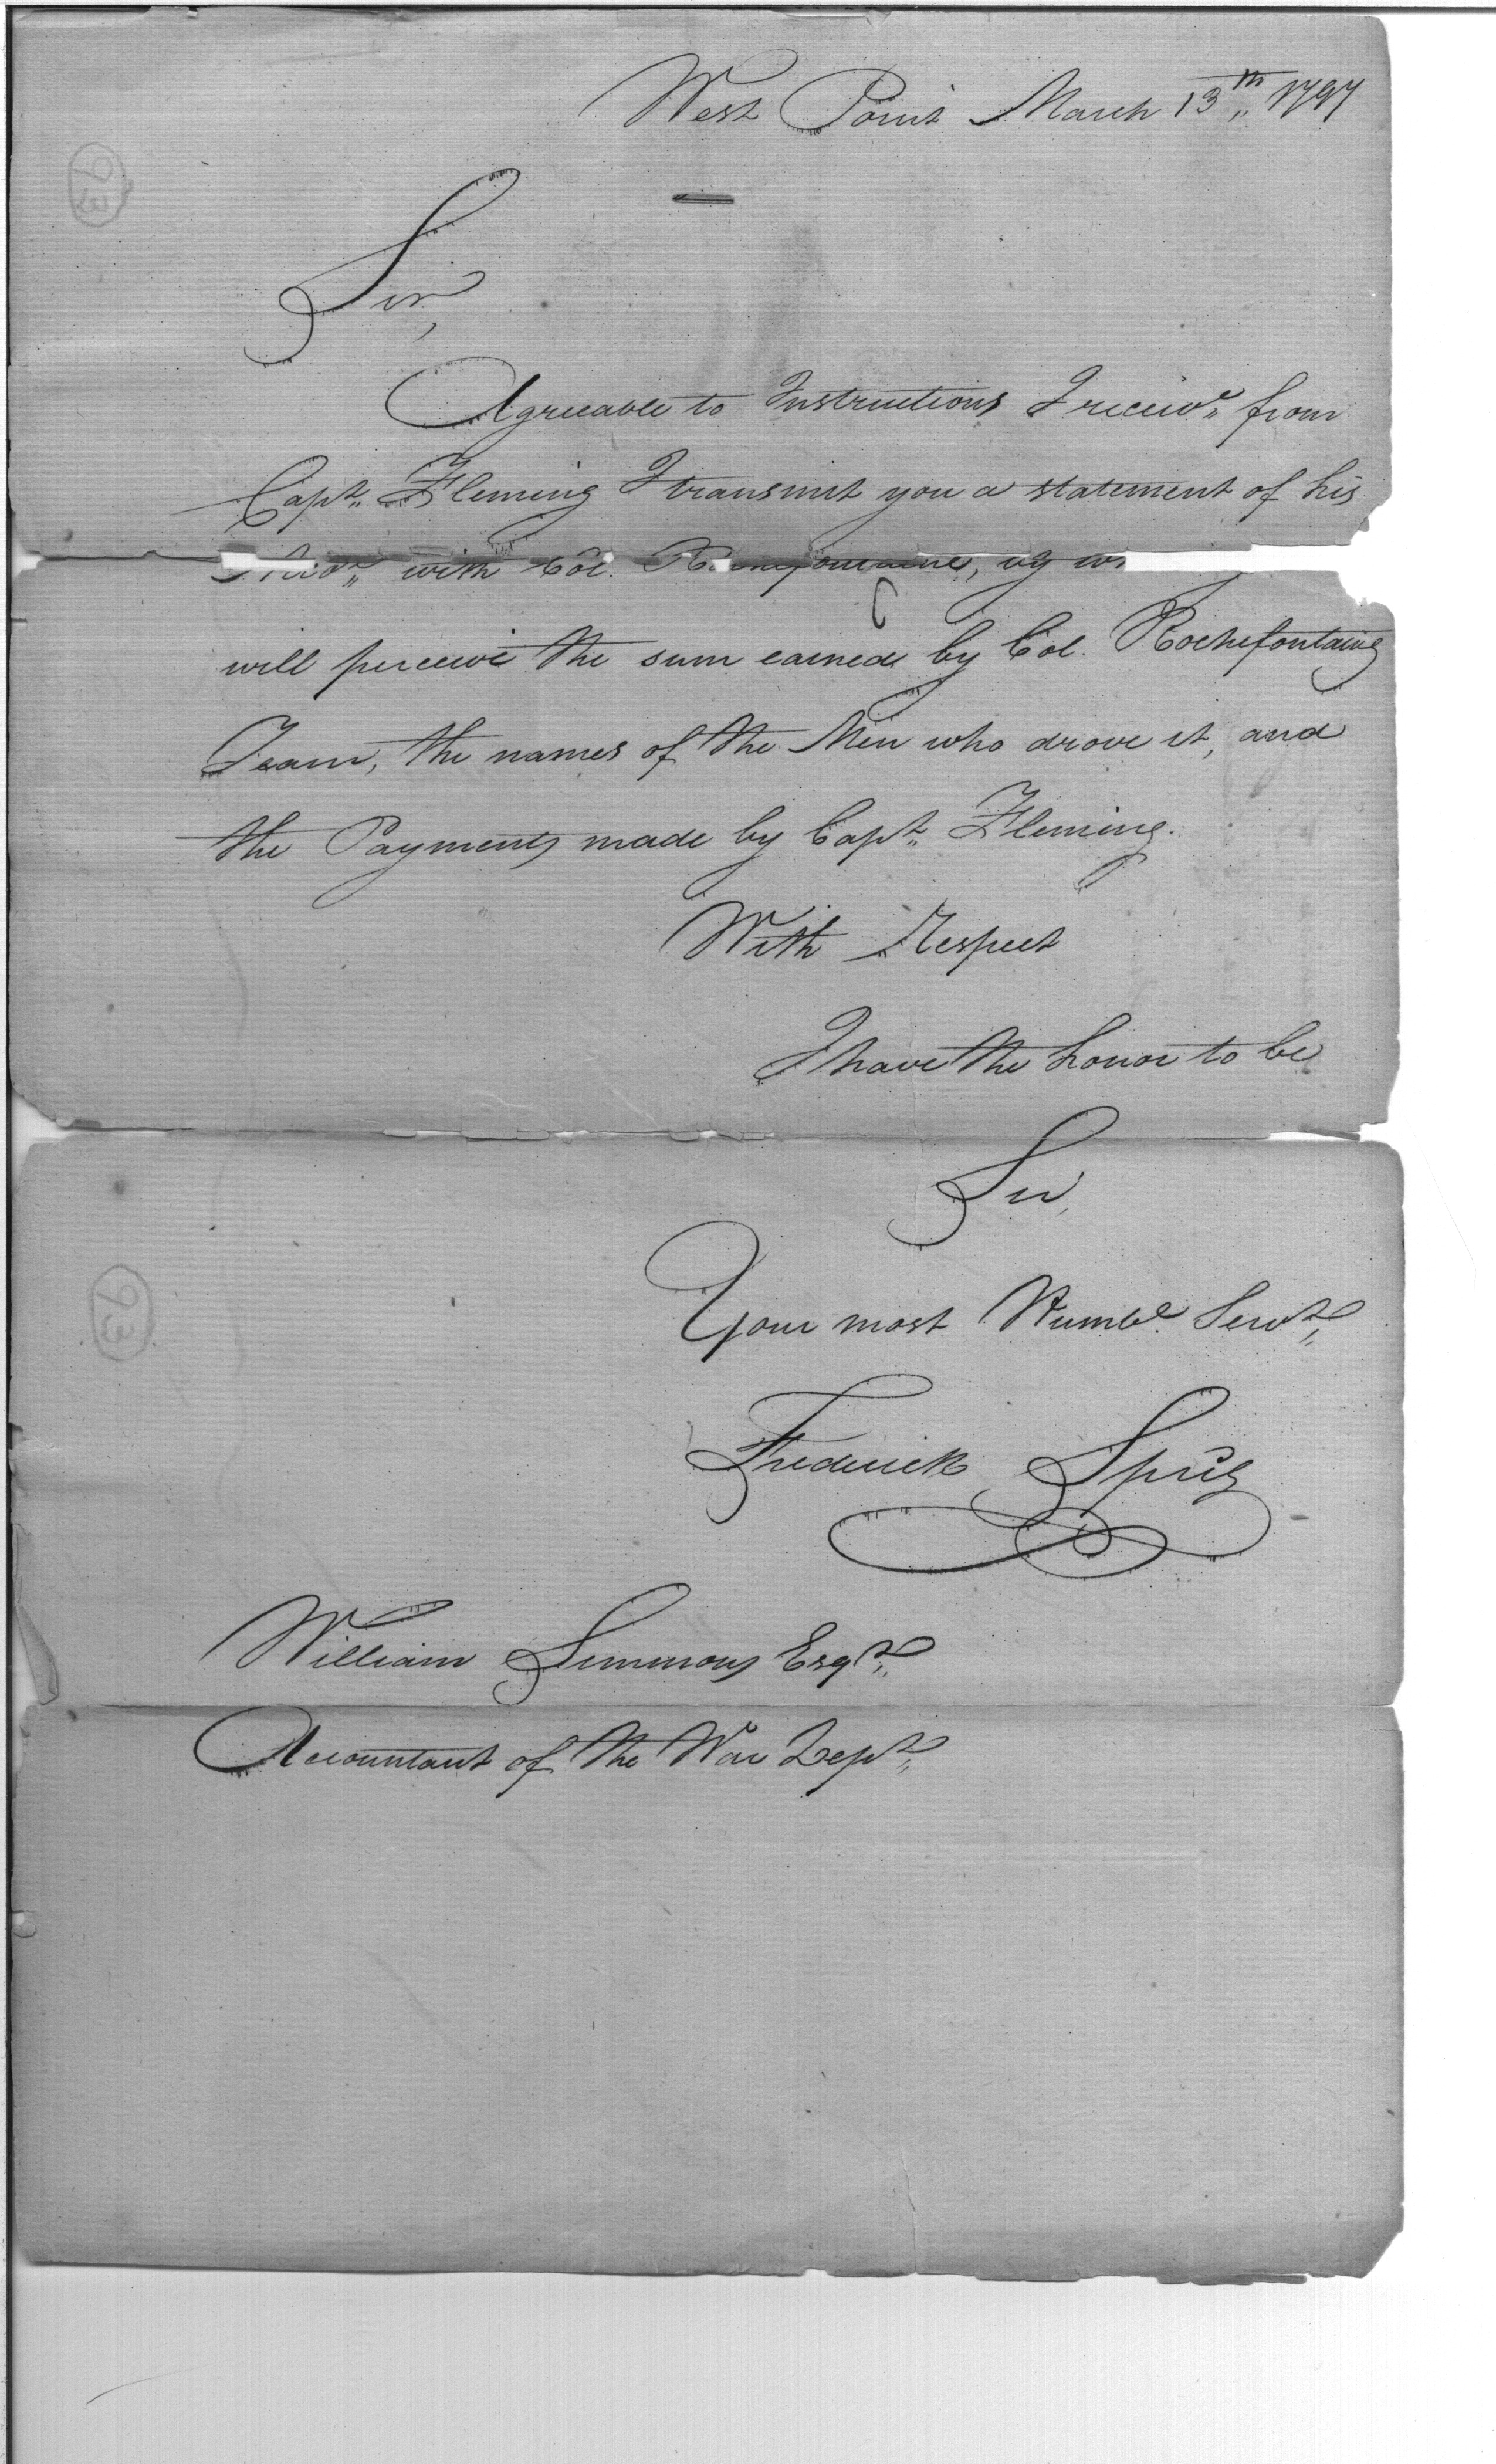 West Point March 13th 1797
Sir,
Agreeable to Instructions I receivd from
Capt Fleming I transmit you a statement of his
with Col. Rochefontaine, by
will perceive the sum earned by Col. Rochefontains
Team, the names of the Men who drove it, and
the Payments made by Capt Fleming.
With Respect
I have the honor to be
Sir,
Your most Humbe Servt
Frederick
William Simmons Esqr
Accountant of the War Dept
93
93